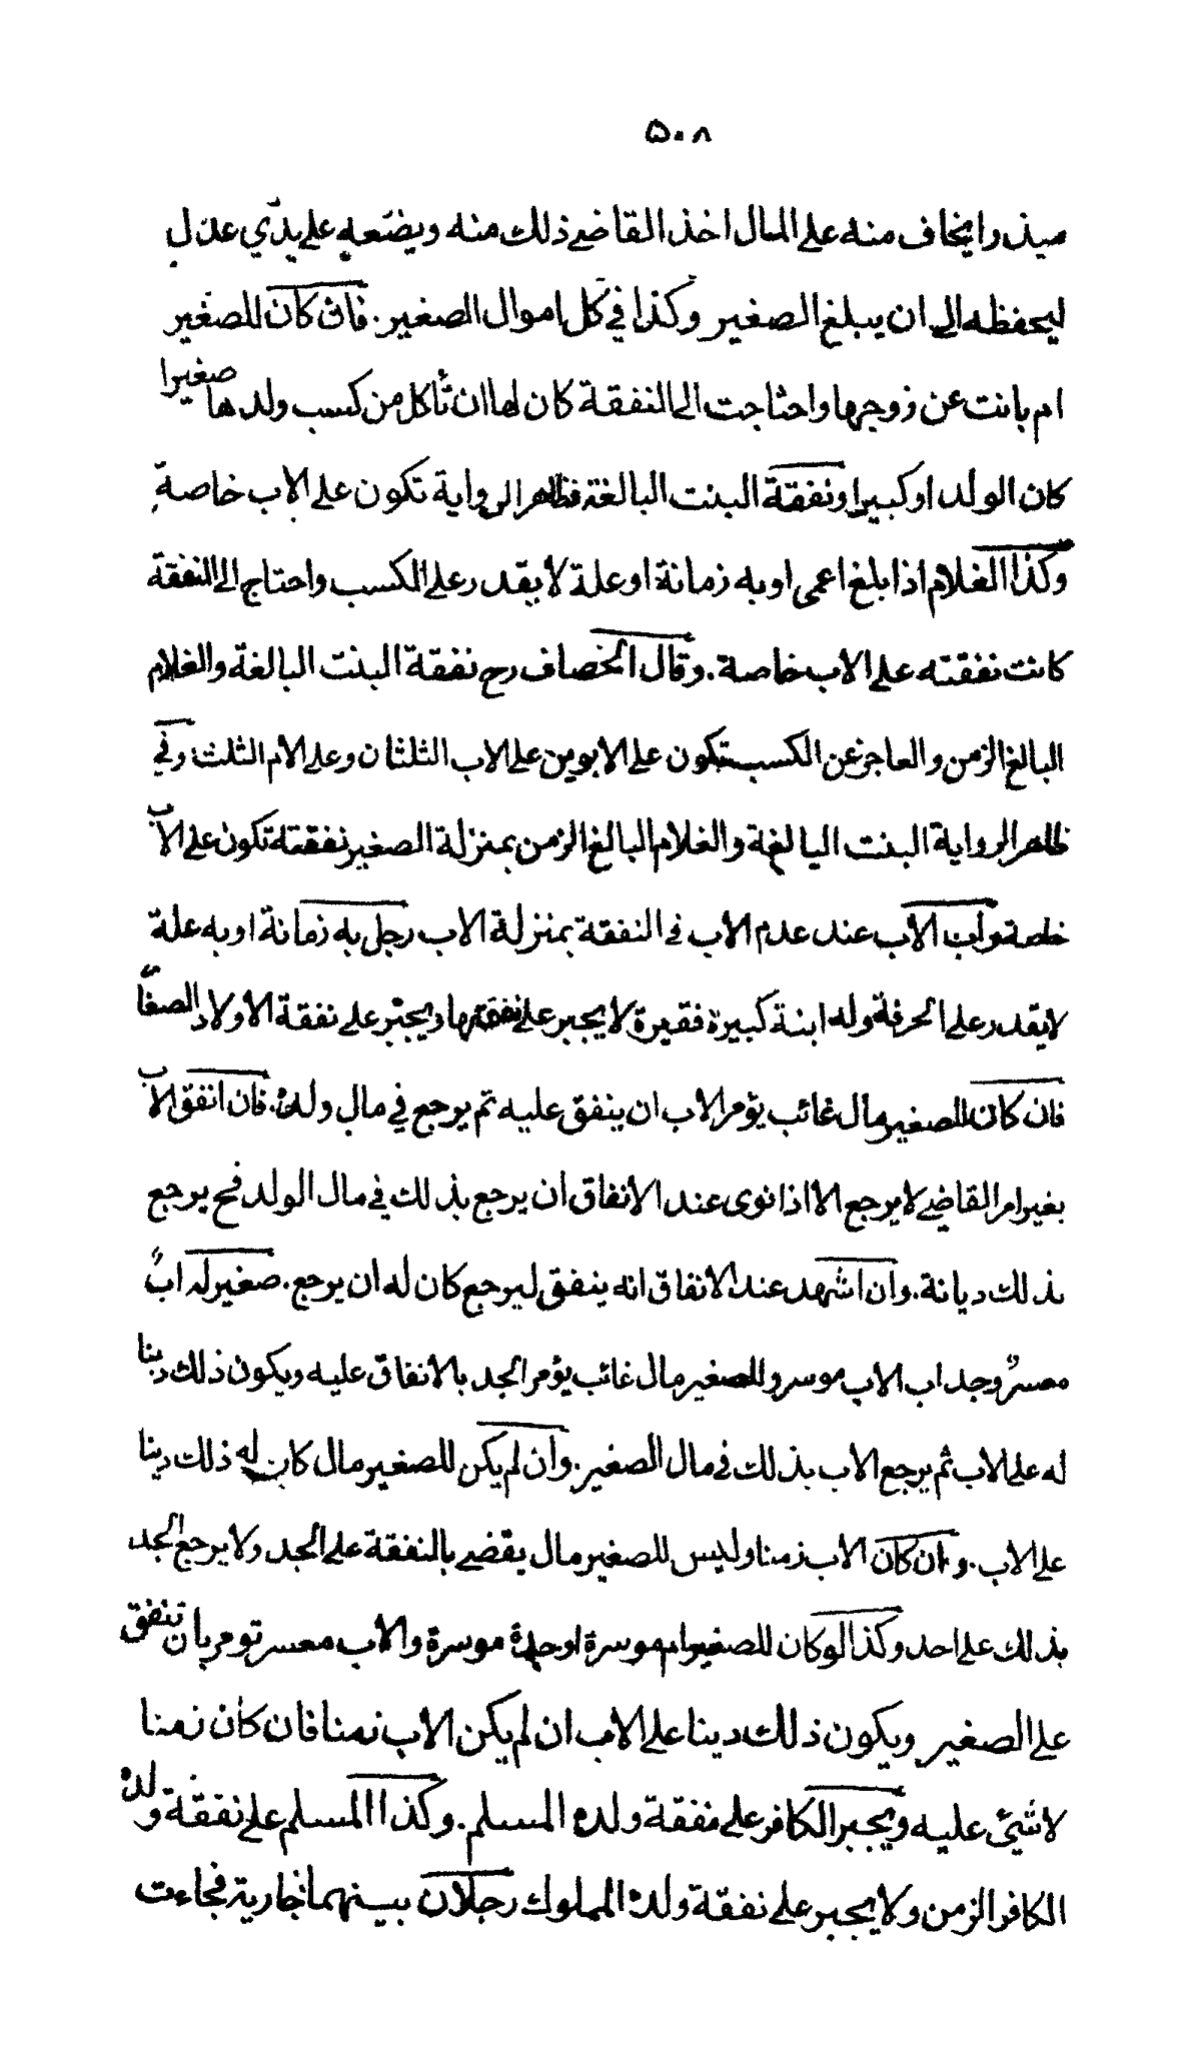 ۵۰۸
مبذرا يخاف منه على المال اخذ القاضي ذلك منه ويضعه على يدي عدل
ليحفظه الى ان يبلغ الصغير وكذا في كل اموال الصغير. فان كان للصغير
ام بانت عن زوجها واحتاجت الى النفقة كان لها ان تأكل من كسب ولدها صغيرا
كان الولد او كبيرا ونفقة البنت البالغة فظاهر الرواية تكون على الاب خاصة
وكذا الغلام اذا بلغ اعمى او به زمانة او علة لا يقدر على الكسب واحتاج الى النفقة
كانت نفقته على الاب خاصة. وقال الخصاف رح نفقة البنت البالغة والغلام
البالغ الزمن والعاجز عن الكسب تكون على الابوين على الاب الثلثان وعلى الام الثلث وفي
ظاهر الرواية البنت البالغة والغلام البالغ الزمن بمنزلة الصغير نفقته تكون على الاب
خاصة واب الاب عند عدم الاب في النفقة بمنزلة الاب رجل به زمانة او به علة
لا يقدر على الحرفة وله ابنة كبيرة فقيرة لا يجبر على نفقتها ويجبر على نفقة الاولاد الصغار
فان كان للصغير مال غائب يؤمر الاب ان ينفق عليه ثم يرجع في مال ولده. فان انفق الاب
بغير امر القاضي لا يرجع الا اذا نوى عند الانفاق ان يرجع بذلك في مال الولد فح يرجع
بذلك ديانة. وان اشهد عند الانفاق انه ينفق ليرجع كان له ان يرجع. صغير له اب
معسر وجد اب الاب موسر وللصغير مال غائب يؤمر الجد بالانفاق عليه ويكون ذلك دينا
له على الاب ثم يرجع الاب بذلك في مال الصغير. وان لم يكن للصغير مال كان له ذلك دينا
على الاب. وان كان الاب زمنا وليس للصغير مال يقضي بالنفقة على الجد ولا يرجع الجد
بذلك على احد وكذا لو كان للصغير ام موسرة او جدة موسرة والاب معسر تومر بان تنفق
على الصغير ويكون ذلك دينا على الاب ان لم يكن الاب زمنا فان كان زمنا
لا شيئ عليه ويجبر الكافر على نفقة ولده المسلم. وكذا المسلم على نفقة ولده
الكافر الزمن ولا يجبر على نفقة ولده المملوك رجلان بينهما جارية فجاءت